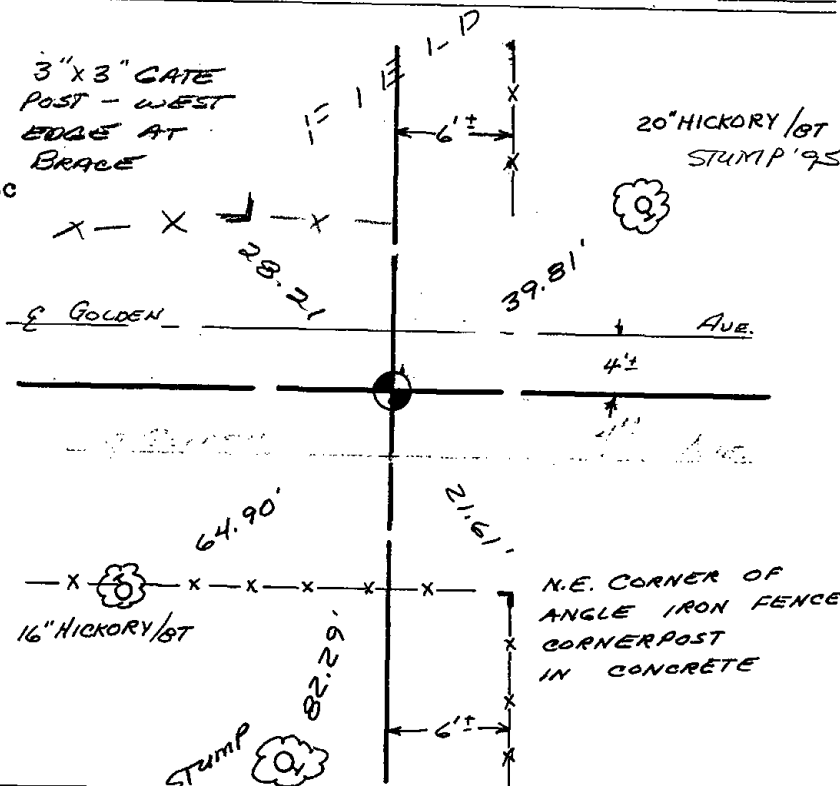 3"x3" GATE
POST - WEST
EDGE AT
BRACE
6'±
20" HICKORY/BT
STUMP '95
28.21
39.81'
℄ GOLDEN AVE.
4'±
64.90'
21.61'
16" HICKORY/BT
N.E. CORNER OF
ANGLE IRON FENCE
CORNERPOST
IN CONCRETE
82.29'
6'±
STUMP